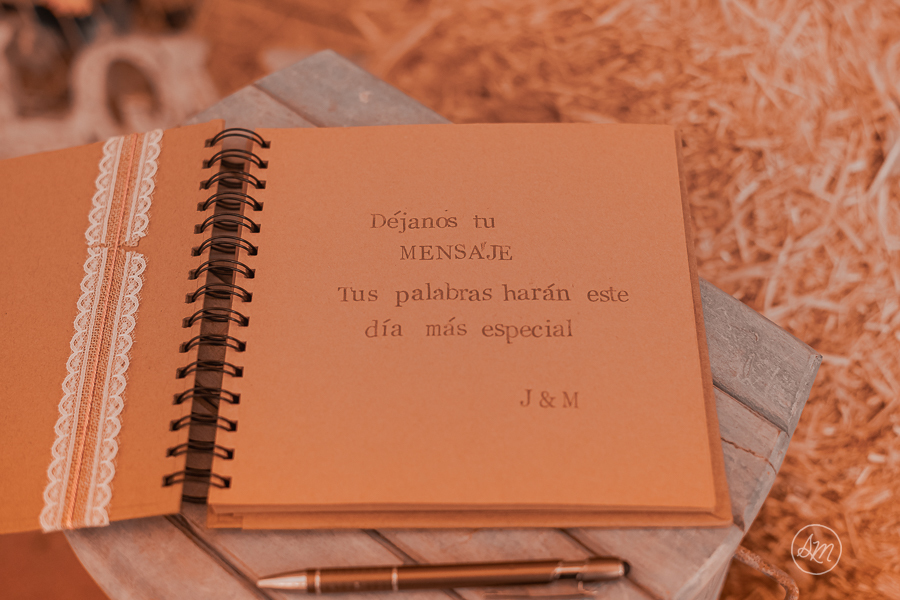 Déjanos tu
MENSAJE
Tus palabras harán este
día más especial
J & M
SM